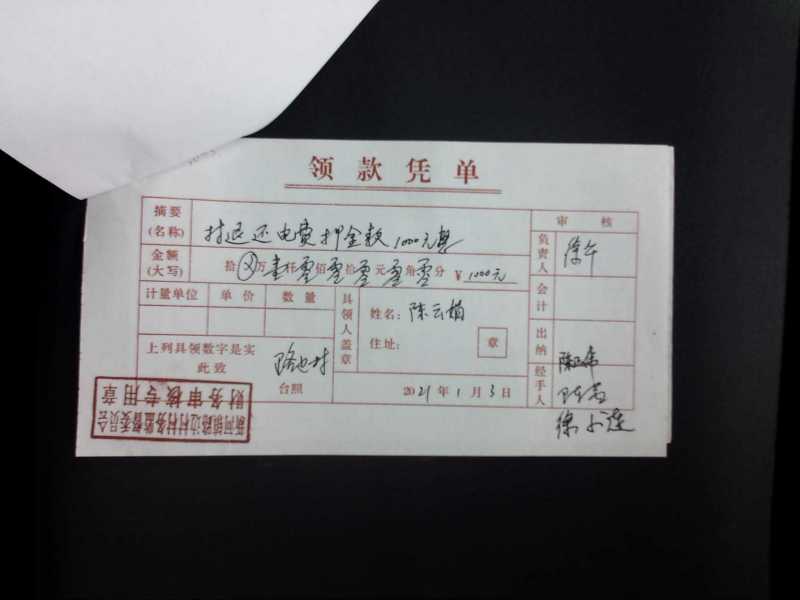 领款凭单
摘要(名称) 村退还电费押金款1000元整
审核
金额(大写) 拾 万壹仟零佰零拾零元零角零分 ¥1000元
负责人
计量单位 单价 数量
具领人盖章 姓名：陈云
会计
住址： 章
上列具领数字是实
此致 路边村
台照
2021年1月3日
出纳
经手人
新河镇路边村村务监督委员会
财务审核专用章